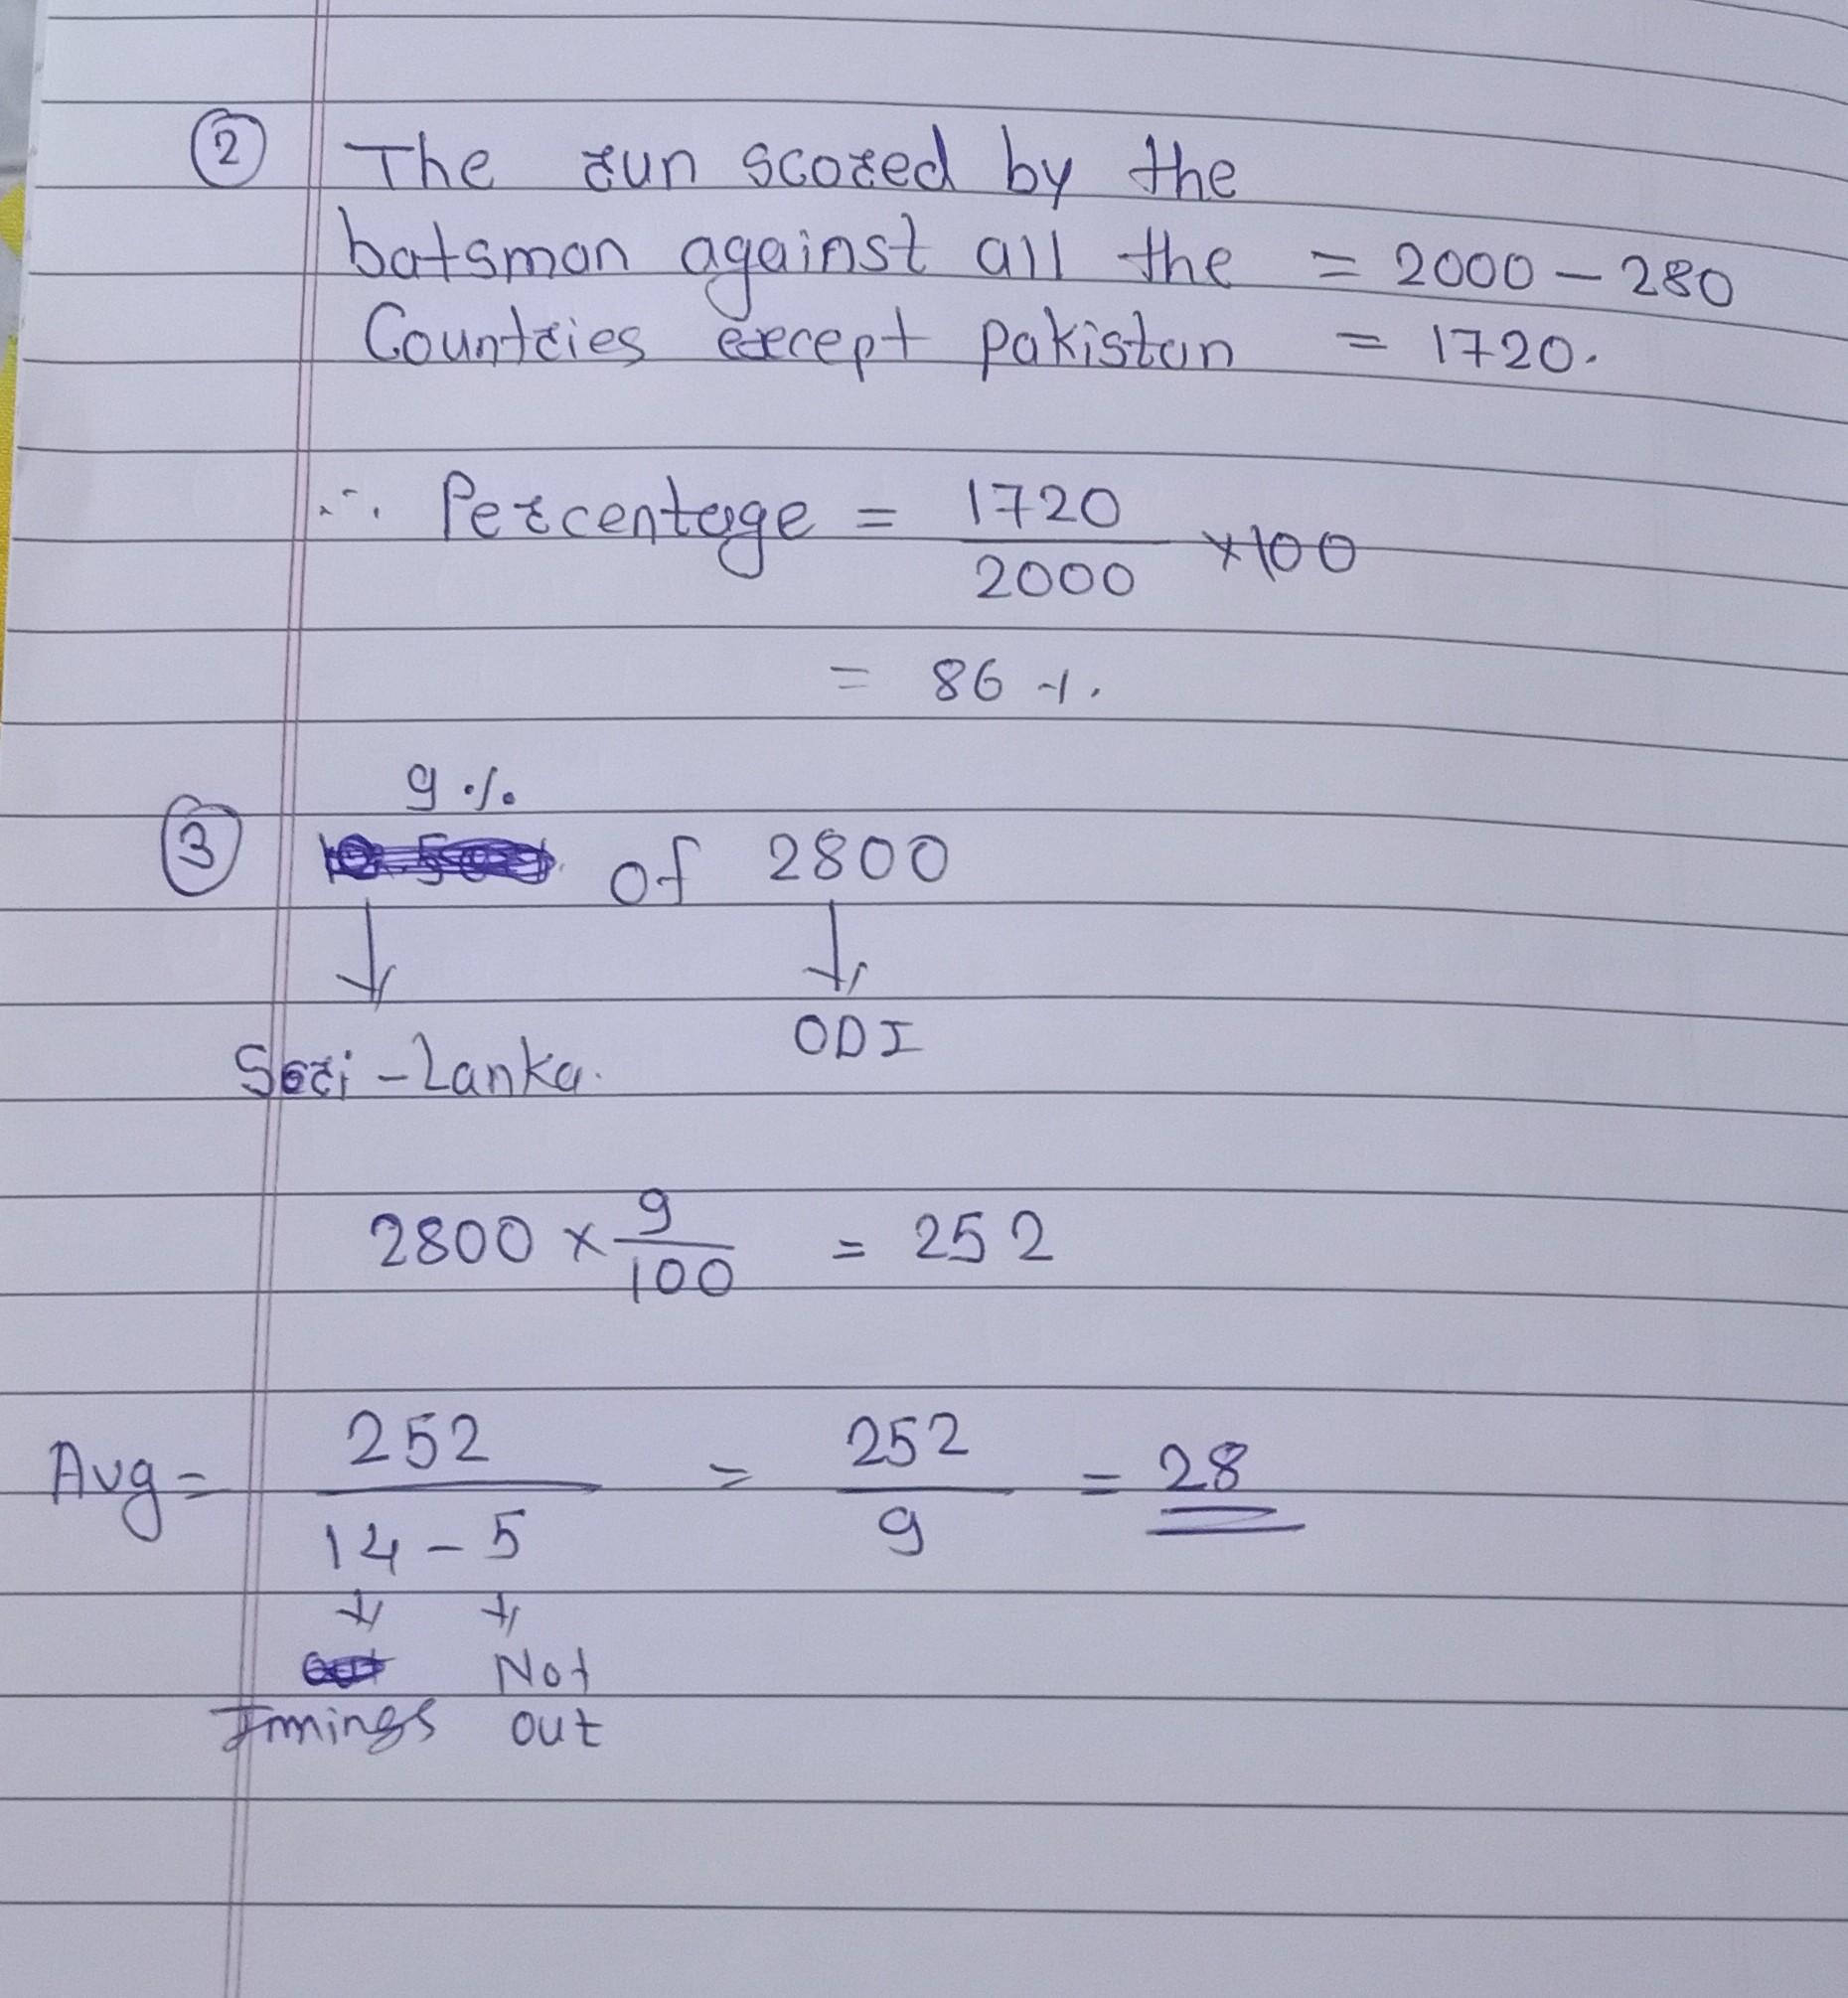 ② The run scored by the
batsman against all the = 2000 - 280
Countries except pakistan = 1720.
∴ Percentage = 1720/2000 ×100
= 86 %.
9 %
③ of 2800
↓ ↓
ODI
Sri - Lanka.
2800 × 9/100 = 252
Avg = 252/14 - 5 = 252/9 = 28
↓ ↓
Not
Innings out